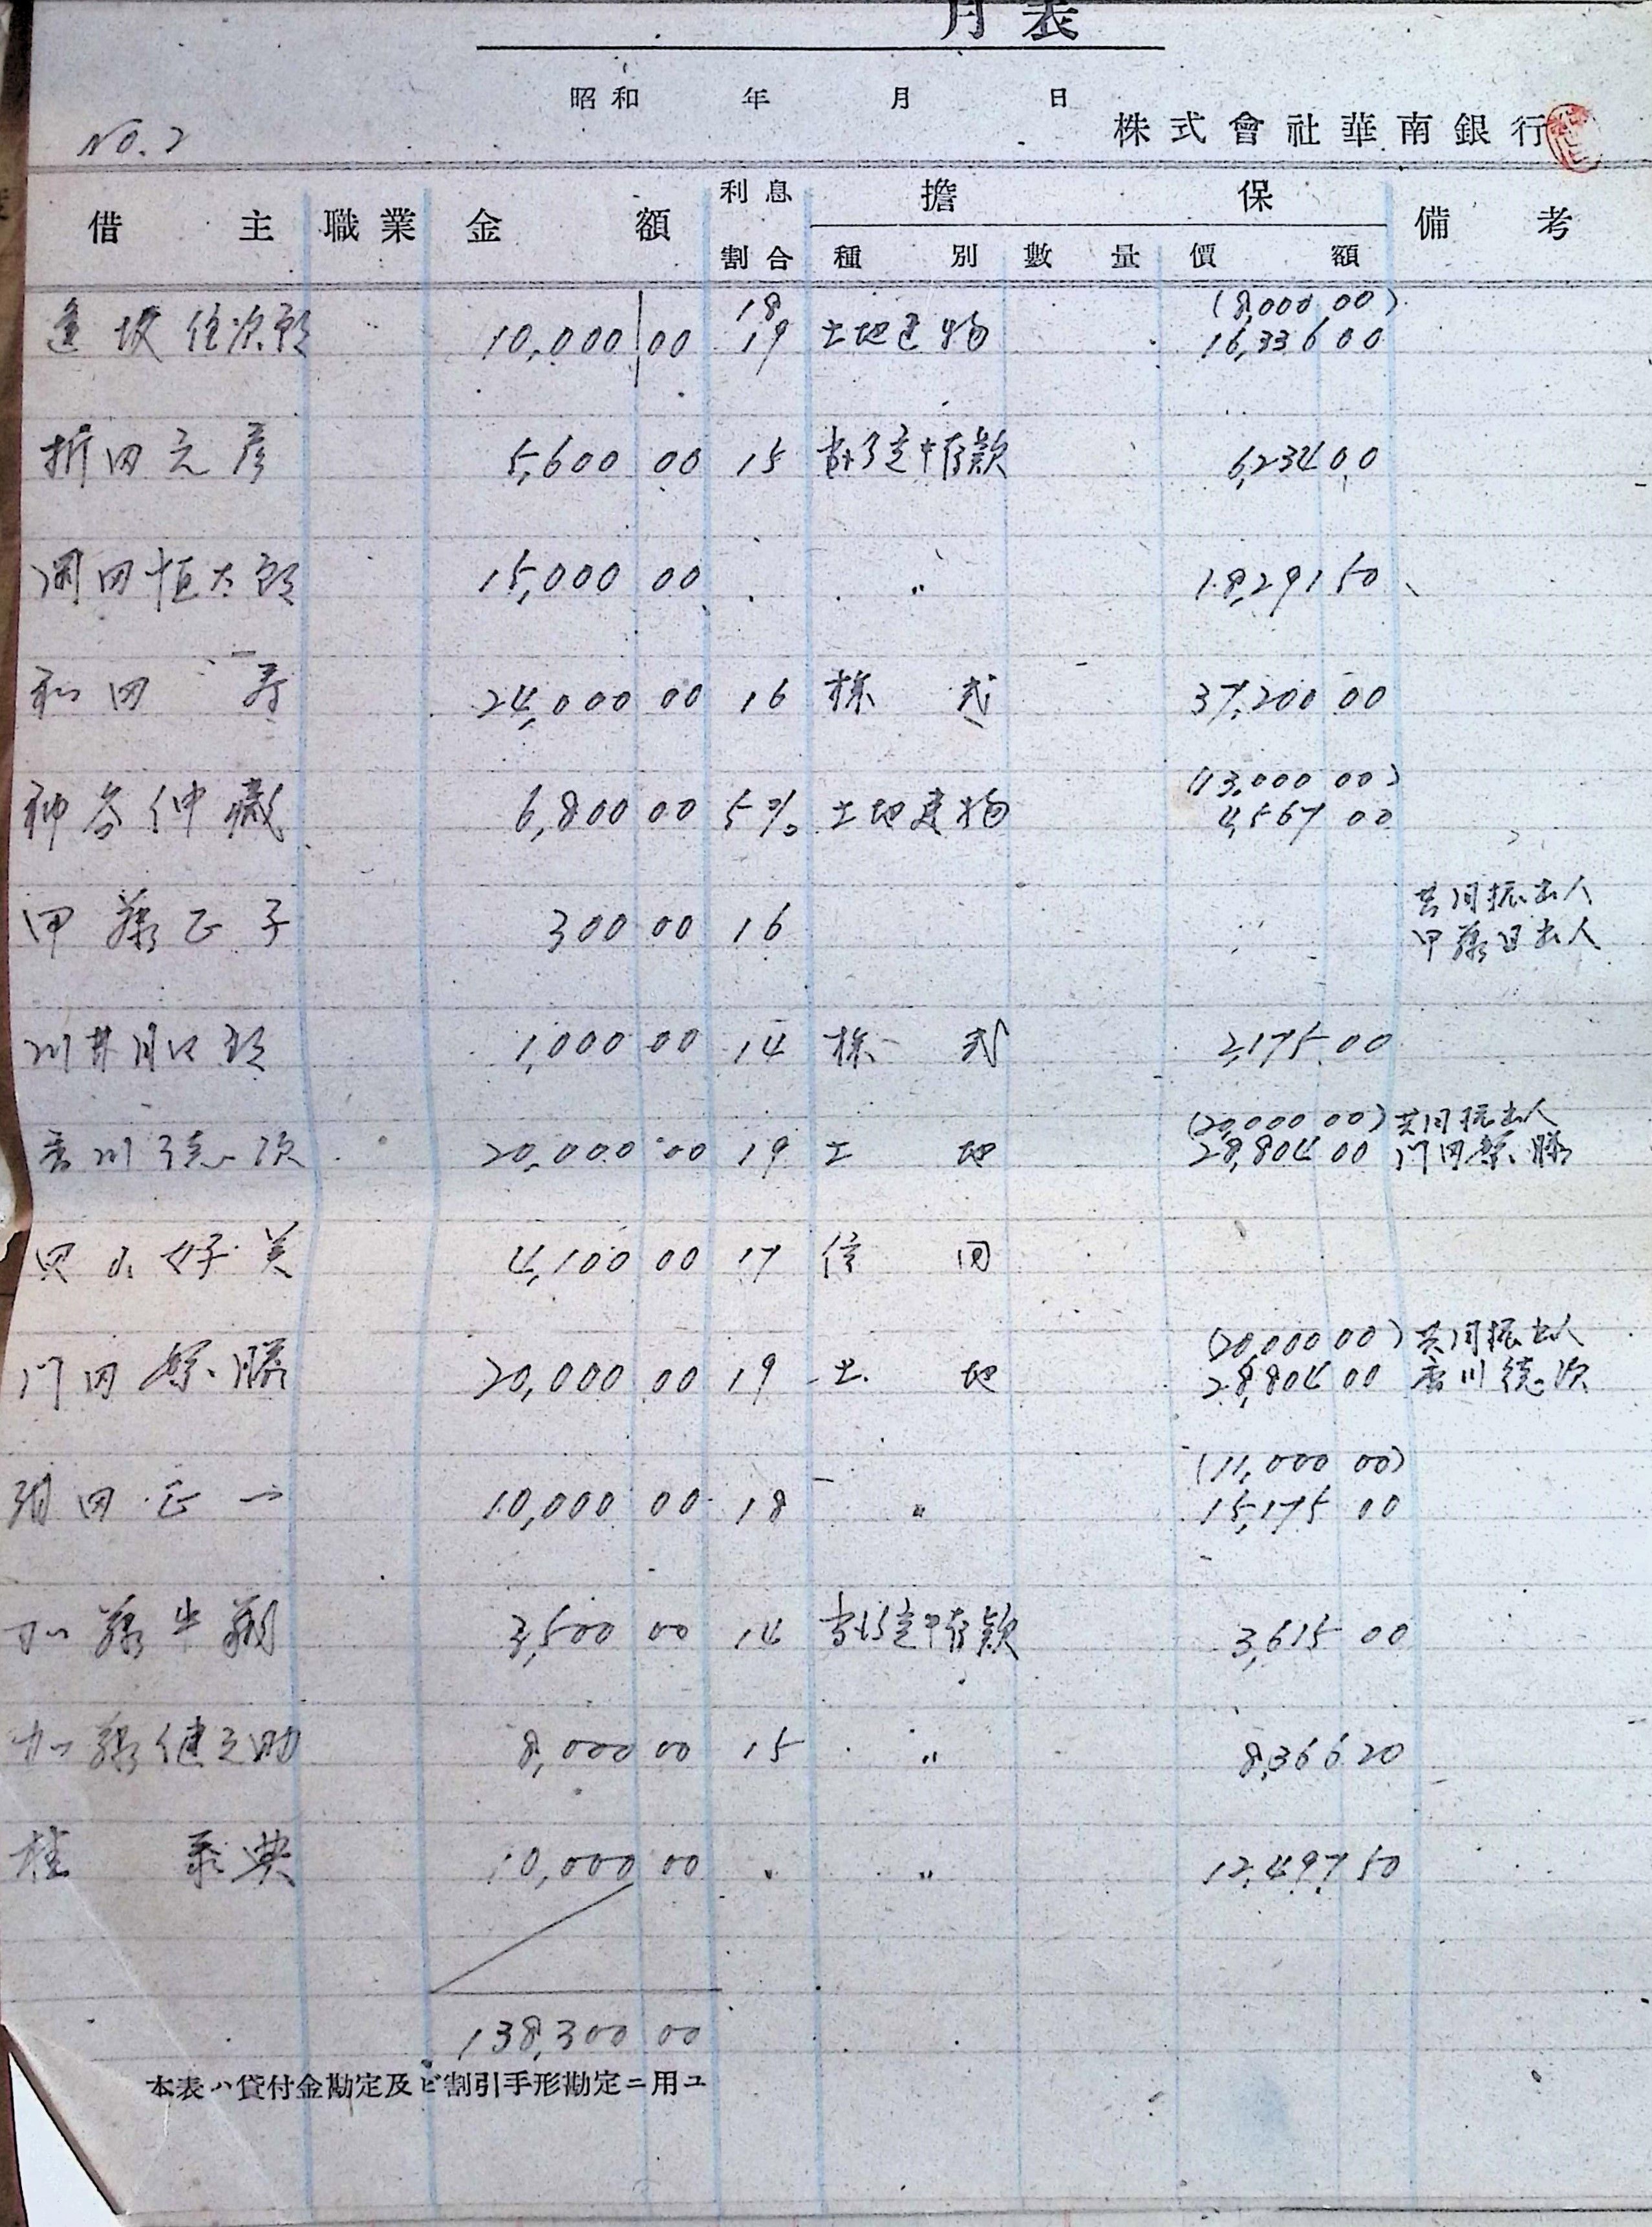 月表
昭和 年 月 日
No. 2
株式會社華南銀行
借主 職業 金額 利息割合 擔保 備考
種別 數量 價額
18 (8,000 00)
10,000 00 19 土地建物 16,336 00
折田元彦 5,600 00 15 6,234 00
岡田恒太郎 15,000 00 〃 18,291 50
和田寿 24,000 00 16 株式 37,200 00
(13,000 00)
神谷仲藏 6,800 00 5% 土地建物 4,567 00
共同振出人
甲藤正子 300 00 16 甲藤
川井 1,000 00 14 株式 2,175 00
(20,000 00) 共同振出人
香川徳次 20,000 00 19 土地 28,804 00 門田 勝
好美 4,100 00 17 信用
(20,000 00) 共同振出人
門田 勝 20,000 00 19 土地 28,804 00 香川徳次
(11,000 00)
田正一 10,000 00 18 〃 15,175 00
加藤 3,500 00 14 3,615 00
加藤健之助 8,000 00 15 〃 8,366 20
桂 泰典 10,000 00 〃 〃 12,497 50
138,300 00
本表ハ貸付金勘定及ビ割引手形勘定ニ用ユ